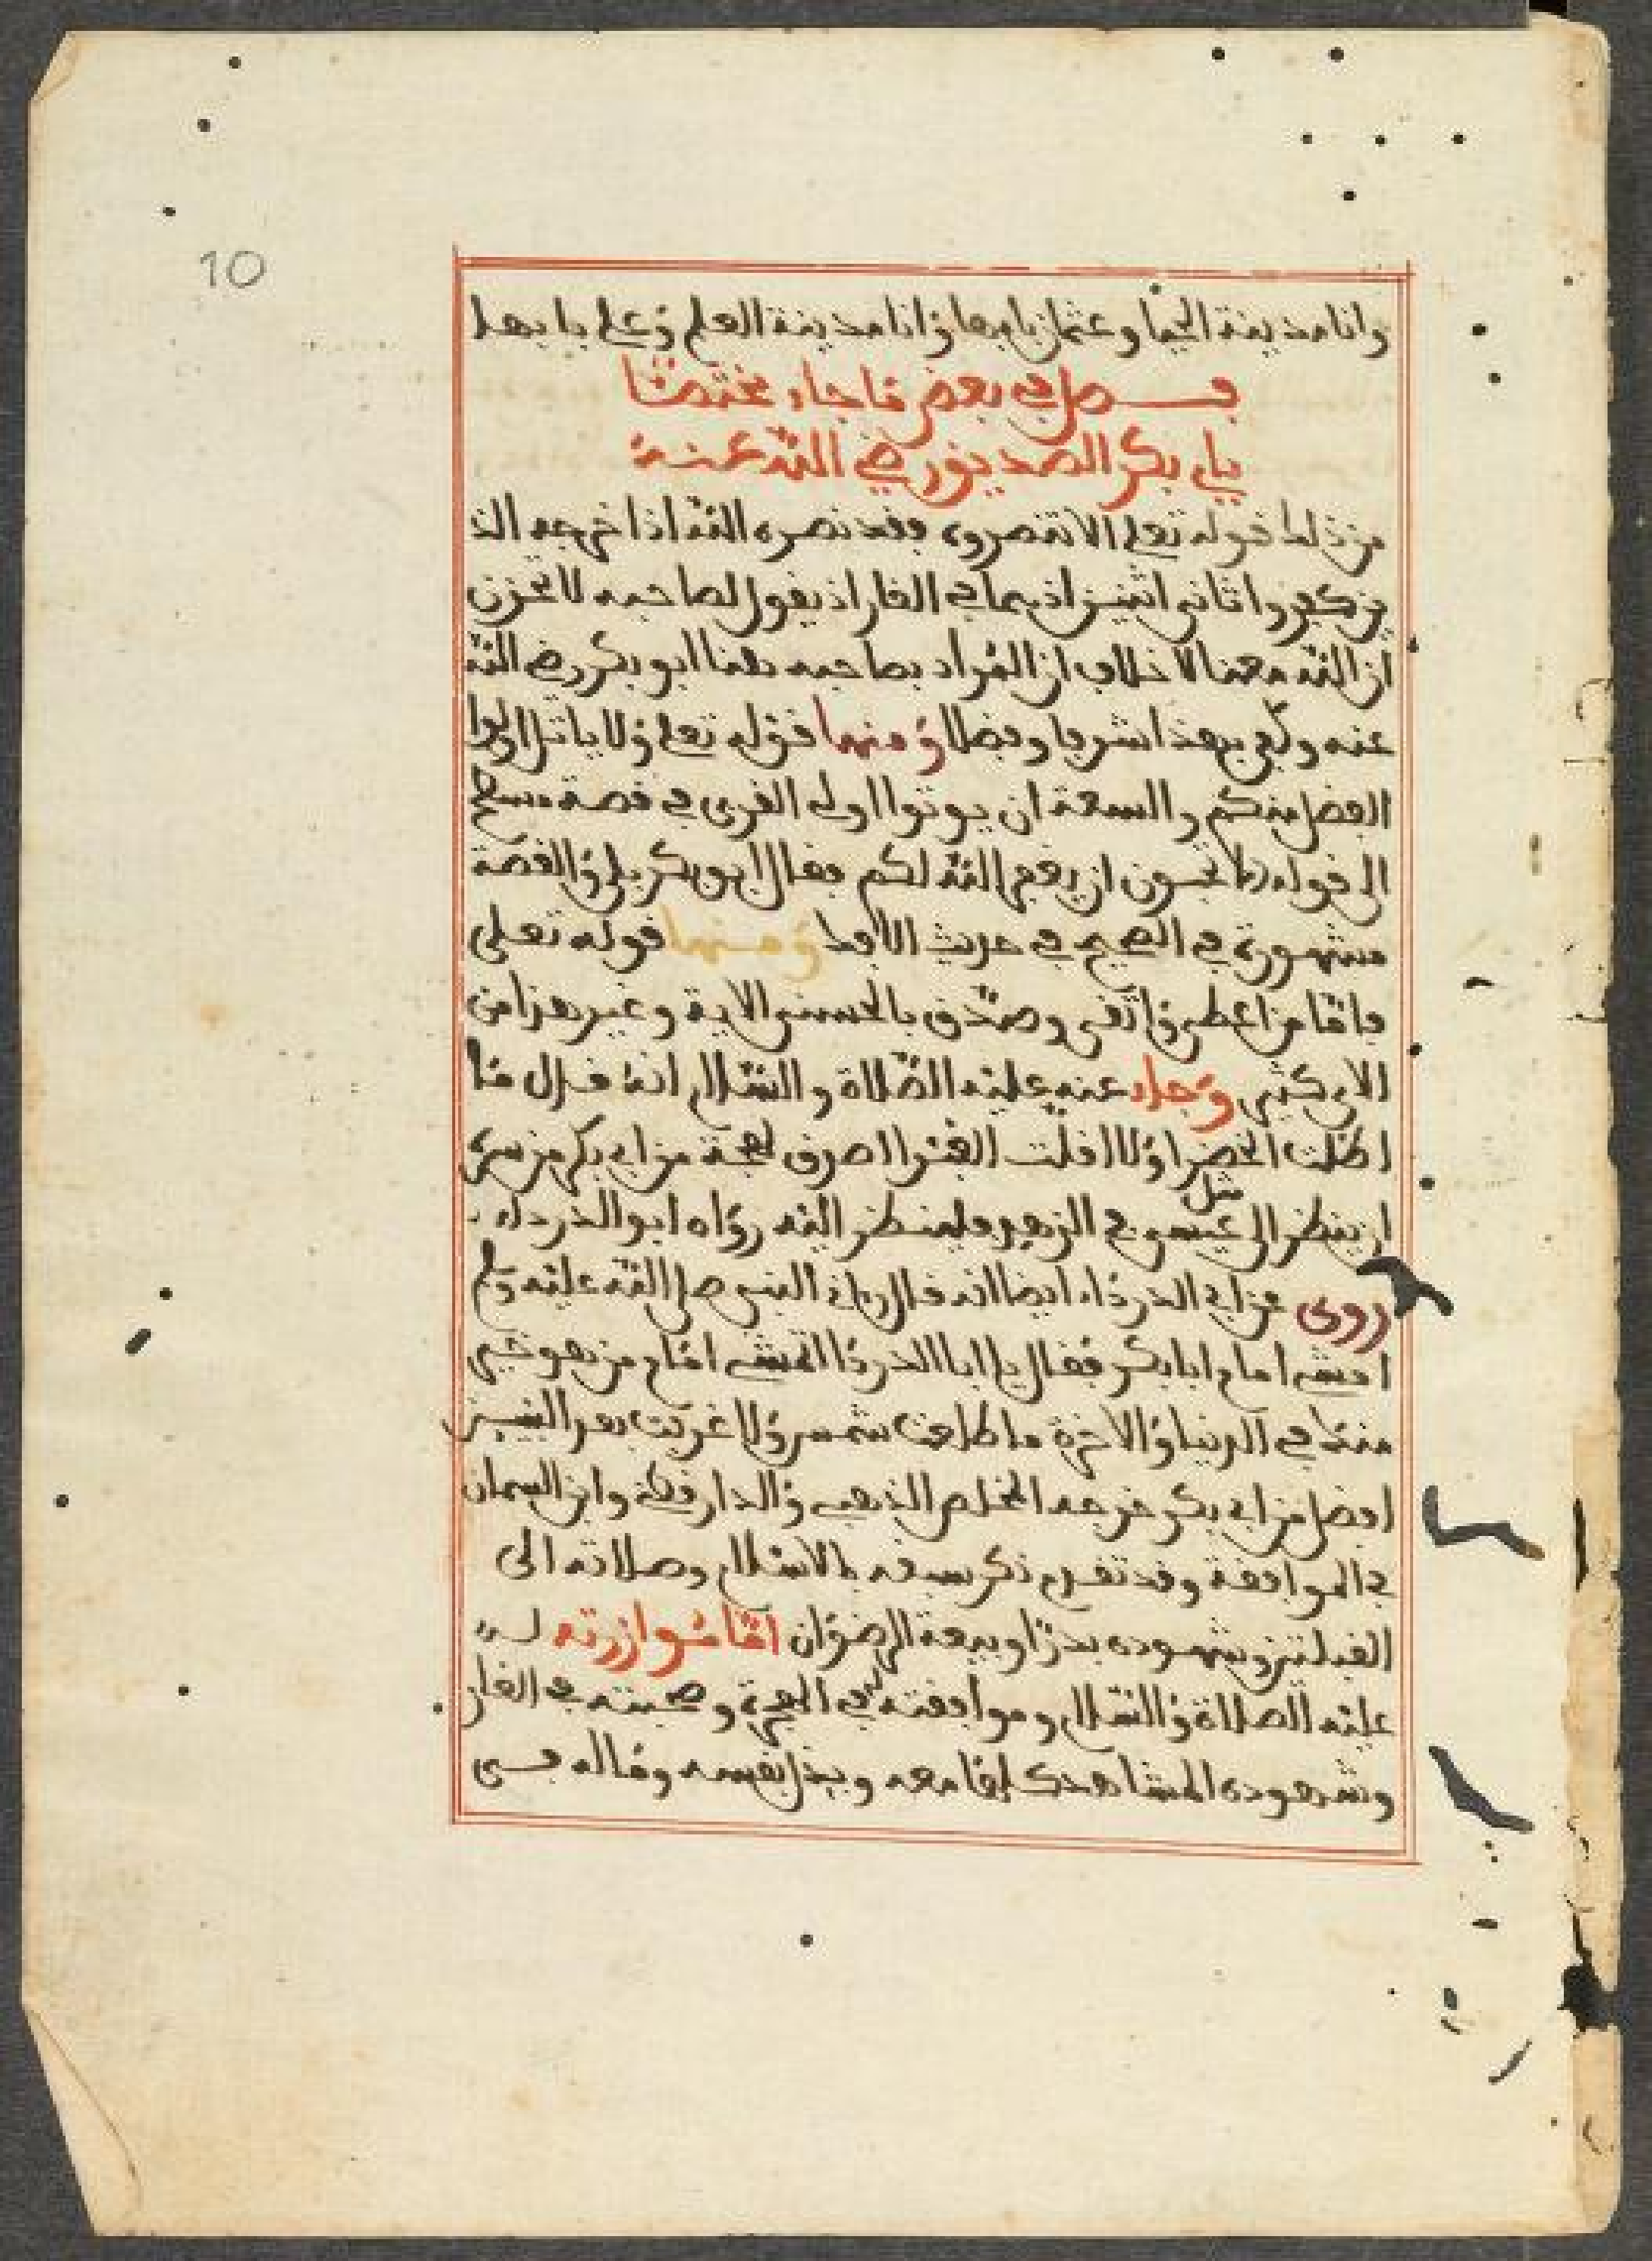 10
وانا مدينة الحيا وعثمان بابها وانا مدينة العلم وعلي بابها
فصل في بعض ما جاء مختصا
بابي بكر الصديق رضي الله عنه
من ذلك قوله تعلى الا تنصروه فقد نصره الله اذ اخرجه الذ
ين كفروا ثاني اثنين اذ هما في الغار اذ يقول لصاحبه لا تحزن
ان الله معنا لا خلاف ان المراد بصاحبه هنا ابو بكر رضي الله
عنه وكفى بهذا شرفا وفضلا ومنها قوله تعلى ولا ياتل اولوا
الفضل منكم والسعة ان يوتوا اولي القربى في قصة مسطح
الى قوله الا تحبون ان يغفر الله لكم فقال ابو بكر بلى والقصة
مشهورة في الصحيح في حديث الافك ومنها قوله تعلى
فاما من اعطى واتقى وصدق بالحسنى الاية وغير هذا من
الاي كثير وجاء عنه عليه الصلاة والسلام انه قال ما
اظلت الخضرا ولا اقلت الغبرا اصدق لهجة من ابي بكر من سره
ان ينظر الى مثل عيسى في الزهد فلينظر اليه رواه ابو الدرداء
روى عن ابي الدرداء ايضا انه قال راني النبي صلى الله عليه وسلم
امشي امام ابا بكر فقال يا ابا الدردا اتمشي امام من هو خير
منك في الدنيا والاخرة ما طلعت شمس ولا غربت بعد النبيين
افضل من ابي بكر خرجه المخلص الذهبي والدارقطني وابن السمان
في الموافقة وقد تقدم ذكر سبقه بالاسلام وصلاته الى
القبلتين وشهوده بدرا وبيعة الرضوان اما موازرته له
عليه الصلاة والسلام وموافقته في الهجرة وصحبته في الغار
وشهوده المشاهد كلها معه وبذل نفسه وماله في